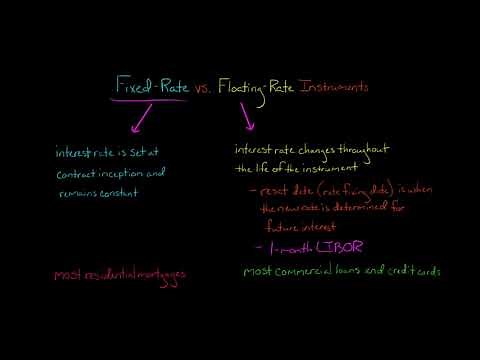 Fixed-Rate vs. Floating-Rate Instruments
interest rate is set at
contract inception and
remains constant
interest rate changes throughout
the life of the instrument
- reset date (rate fixing date) is when
the new rate is determined for
future interest
- 1-month LIBOR
most residential mortgages
most commercial loans and credit cards